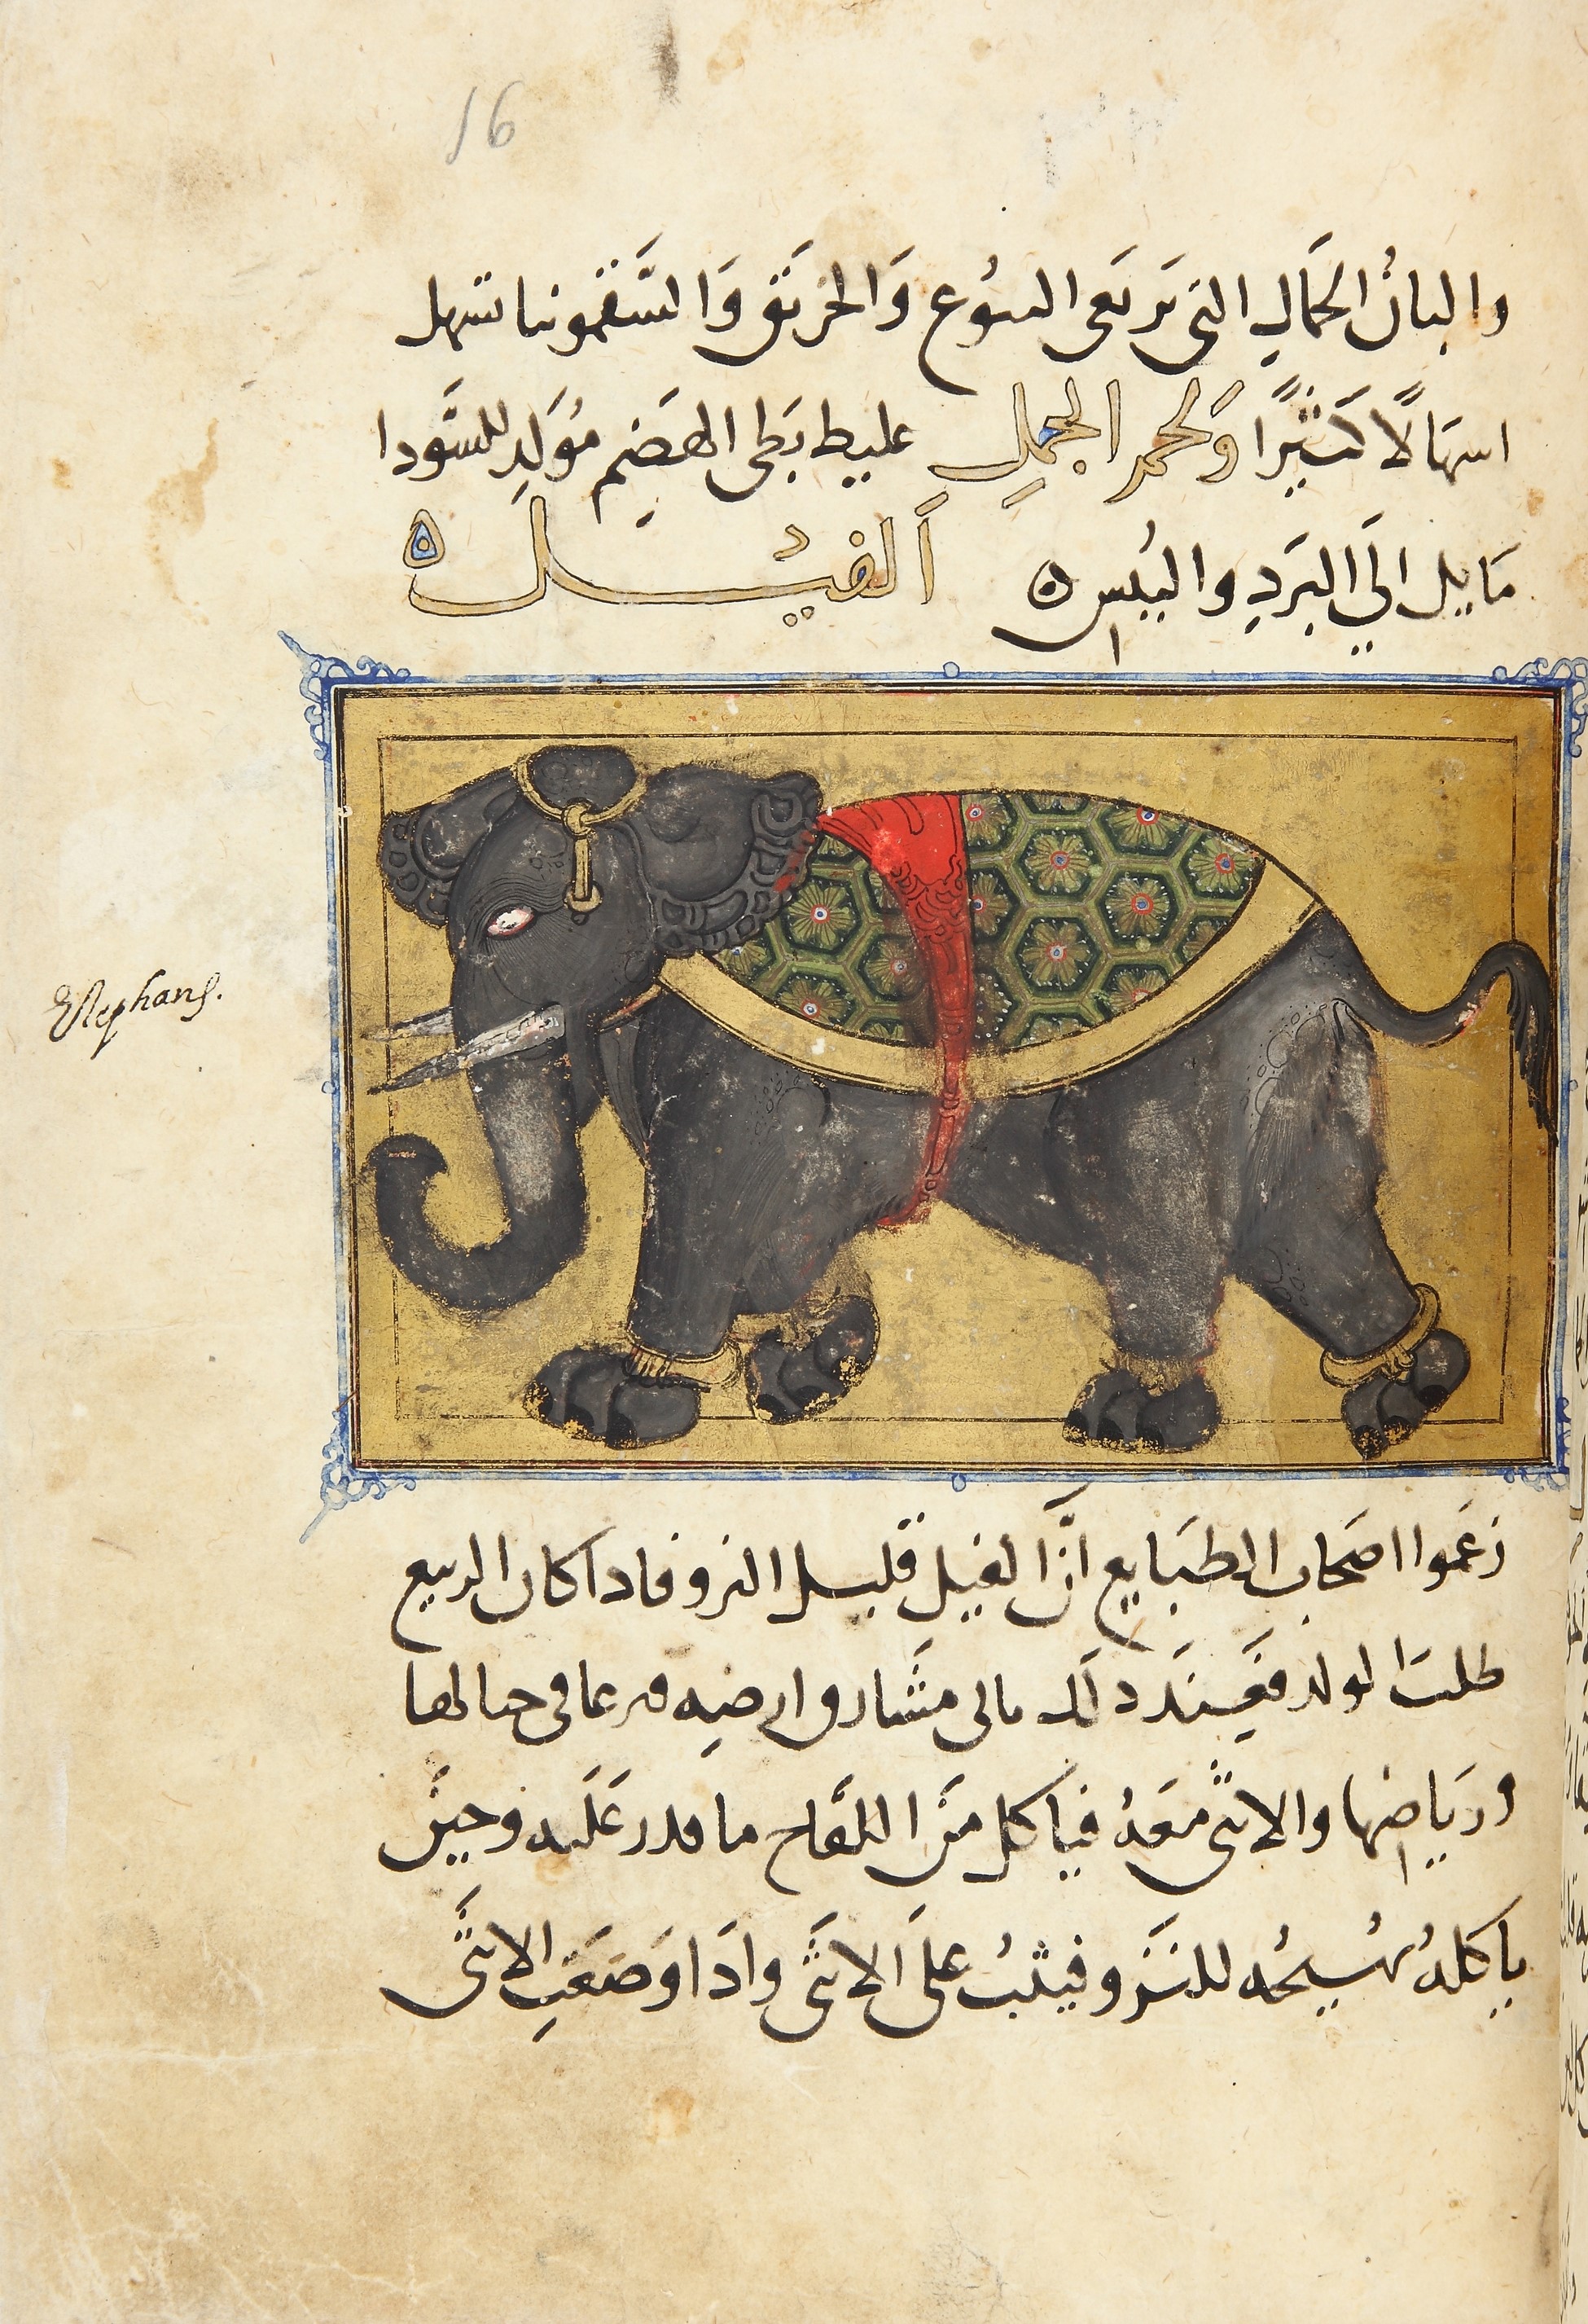 16
والبانُ الجمَالِ التى تَرتَعى اليتوُع وَالخربَق وَالسَّقمونيا تسهل
اسهَالًا كَثيرًا وَلحمر الجمل غليط بَطى الهضَمِ مُوَلدِ للسَّودا
مَايل الَي البَردِ والبُبس ۵ اَلفيْل ۵
Elephans.
زعَموا اصحاب الطبَايع انَّ الفيلِ قليل النزو فاداكان الربيع
طلبَ الولد فعِندَ دلَك ياتى مشَارق ارضِه فيرعا فى جبالها
ورَياضها والانثى معَهُ فياكل منَ اللفَّاح ماقدر عَلَيه وحينَ
ياكلهُ يهُيجُه للنَزو فيثبُ علىَ الانثَى وادَا وَضعَتِ الانثَى